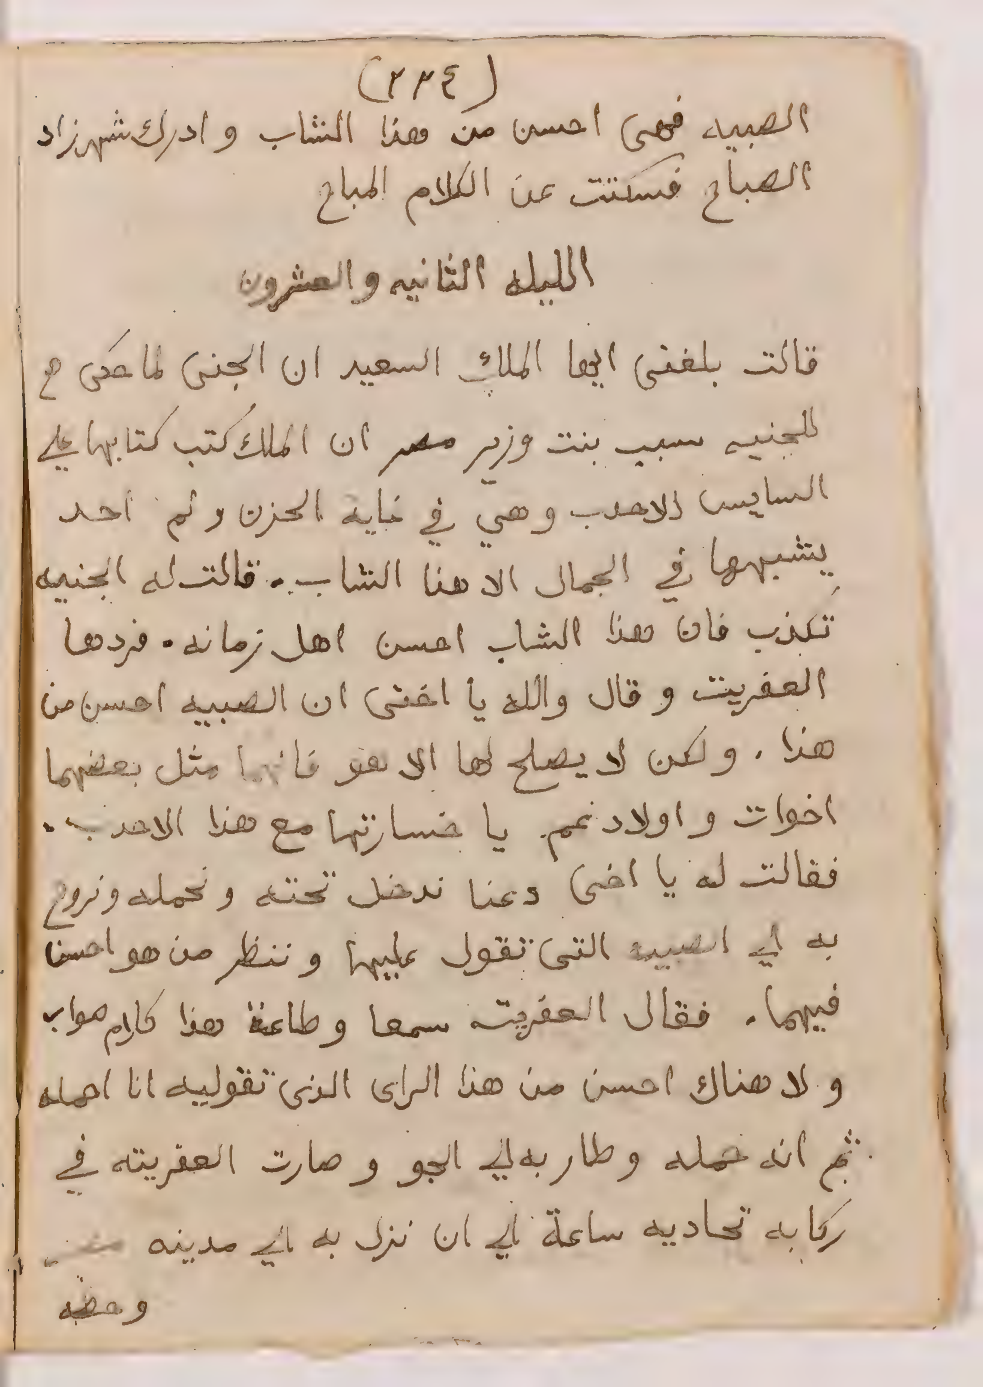 (٢٣٤)
الصبيه فهى احسن من هذا الشاب و ادرك شهرزاد
الصباح فسكتت عن الكلام المباح
الليله الثانيه والعشرون
قالت بلغنى ايها الملك السعيد ان الجنى لما حكى
للجنيه سبب بنت وزير مصر ان الملك كتب كتابها علي
السايس الاحدب وهي في غاية الحزن و لم احد
يشبهها في الجمال الا هذا الشاب . قالت له الجنيه
تكذب فان هذا الشاب احسن اهل زمانه . فردها
العفريت و قال والله يا اختى ان الصبيه احسن من
هذا . ولكن لا يصلح لها الا هو فانهما مثل بعضهما
اخوات و اولاد عم يا خسارتها مع هذا الاحدب .
فقالت له يا اخى دعنا ندخل تحته و نحمله ونروح
به الي الصبيه التى تقول عليها و ننظر من هو احسن
فيهما . فقال العفريت سمعا وطاعة هذا كلام صواب
و لا هناك احسن من هذا الراى الذى تقوليه انا احمله
ثم انه حمله و طار به الي الجو و صارت العفريته في
ركابه تحاديه ساعة الي ان نزل به الي مدينه